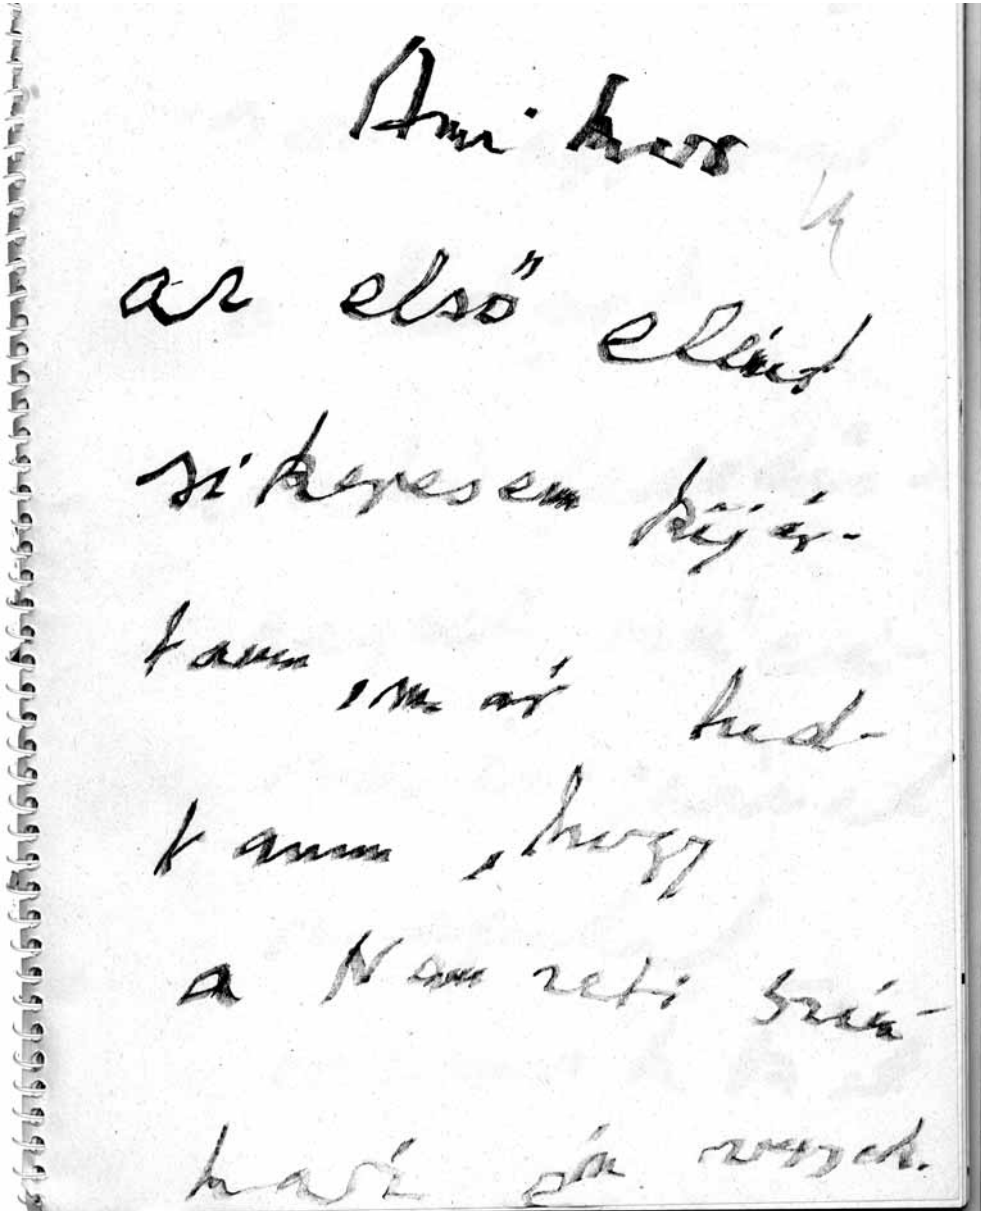 Amikor
az első elemet
sikeresen kijár-
tam, már tud-
tam, hogy
a Nemzeti Szín-
ház én vagyok.